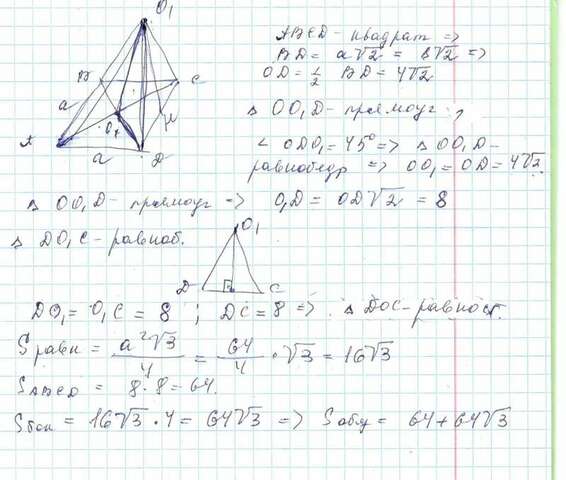 O₁
ABCD - квадрат =>
BD = a√2 = 8√2 =>
OD = 1/2 BD = 4√2
B
C
a
A
O
a
D
△ OO₁D - прямоуг,
∠ ODO₁ = 45° => △ OO₁D -
равнобедр => OO₁ = OD = 4√2.
△ OO₁D - прямоуг => O₁D = OD√2 = 8
△ DO₁C - равноб.
O₁
D
C
DO₁ = O₁C = 8 ; DC = 8 => △ DOC - равност.
S равн = a²√3/4 = 64/4 · √3 = 16√3
S ABCD = 8·8 = 64.
S бок = 16√3 · 4 = 64√3 => S общ = 64 + 64√3